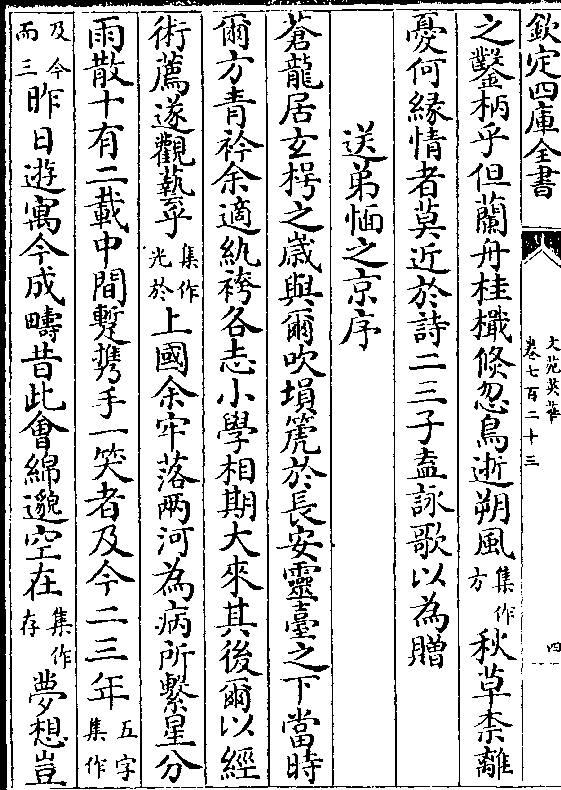 欽定四庫全書
文苑英華
卷七百二十三
四
之鑿枘乎但蘭舟桂檝倐忽鳥逝朔風集作方秋草柰離
憂何緣情者莫近於詩二三子盍詠歌以為贈
送弟愐之京序
蒼龍居玄枵之嵗與爾吹塤箎於長安靈臺之下當時
爾方青衿余適紈袴各志小學相期大來其後爾以經
術薦遂觀藝乎集作光於上國余牢落兩河為病所繫星分
雨散十有二載中間蹔携手一笑者及今二三年五字集作
及今而三昨日逰寓今成疇昔此會綿邈空在集作存夢想豈